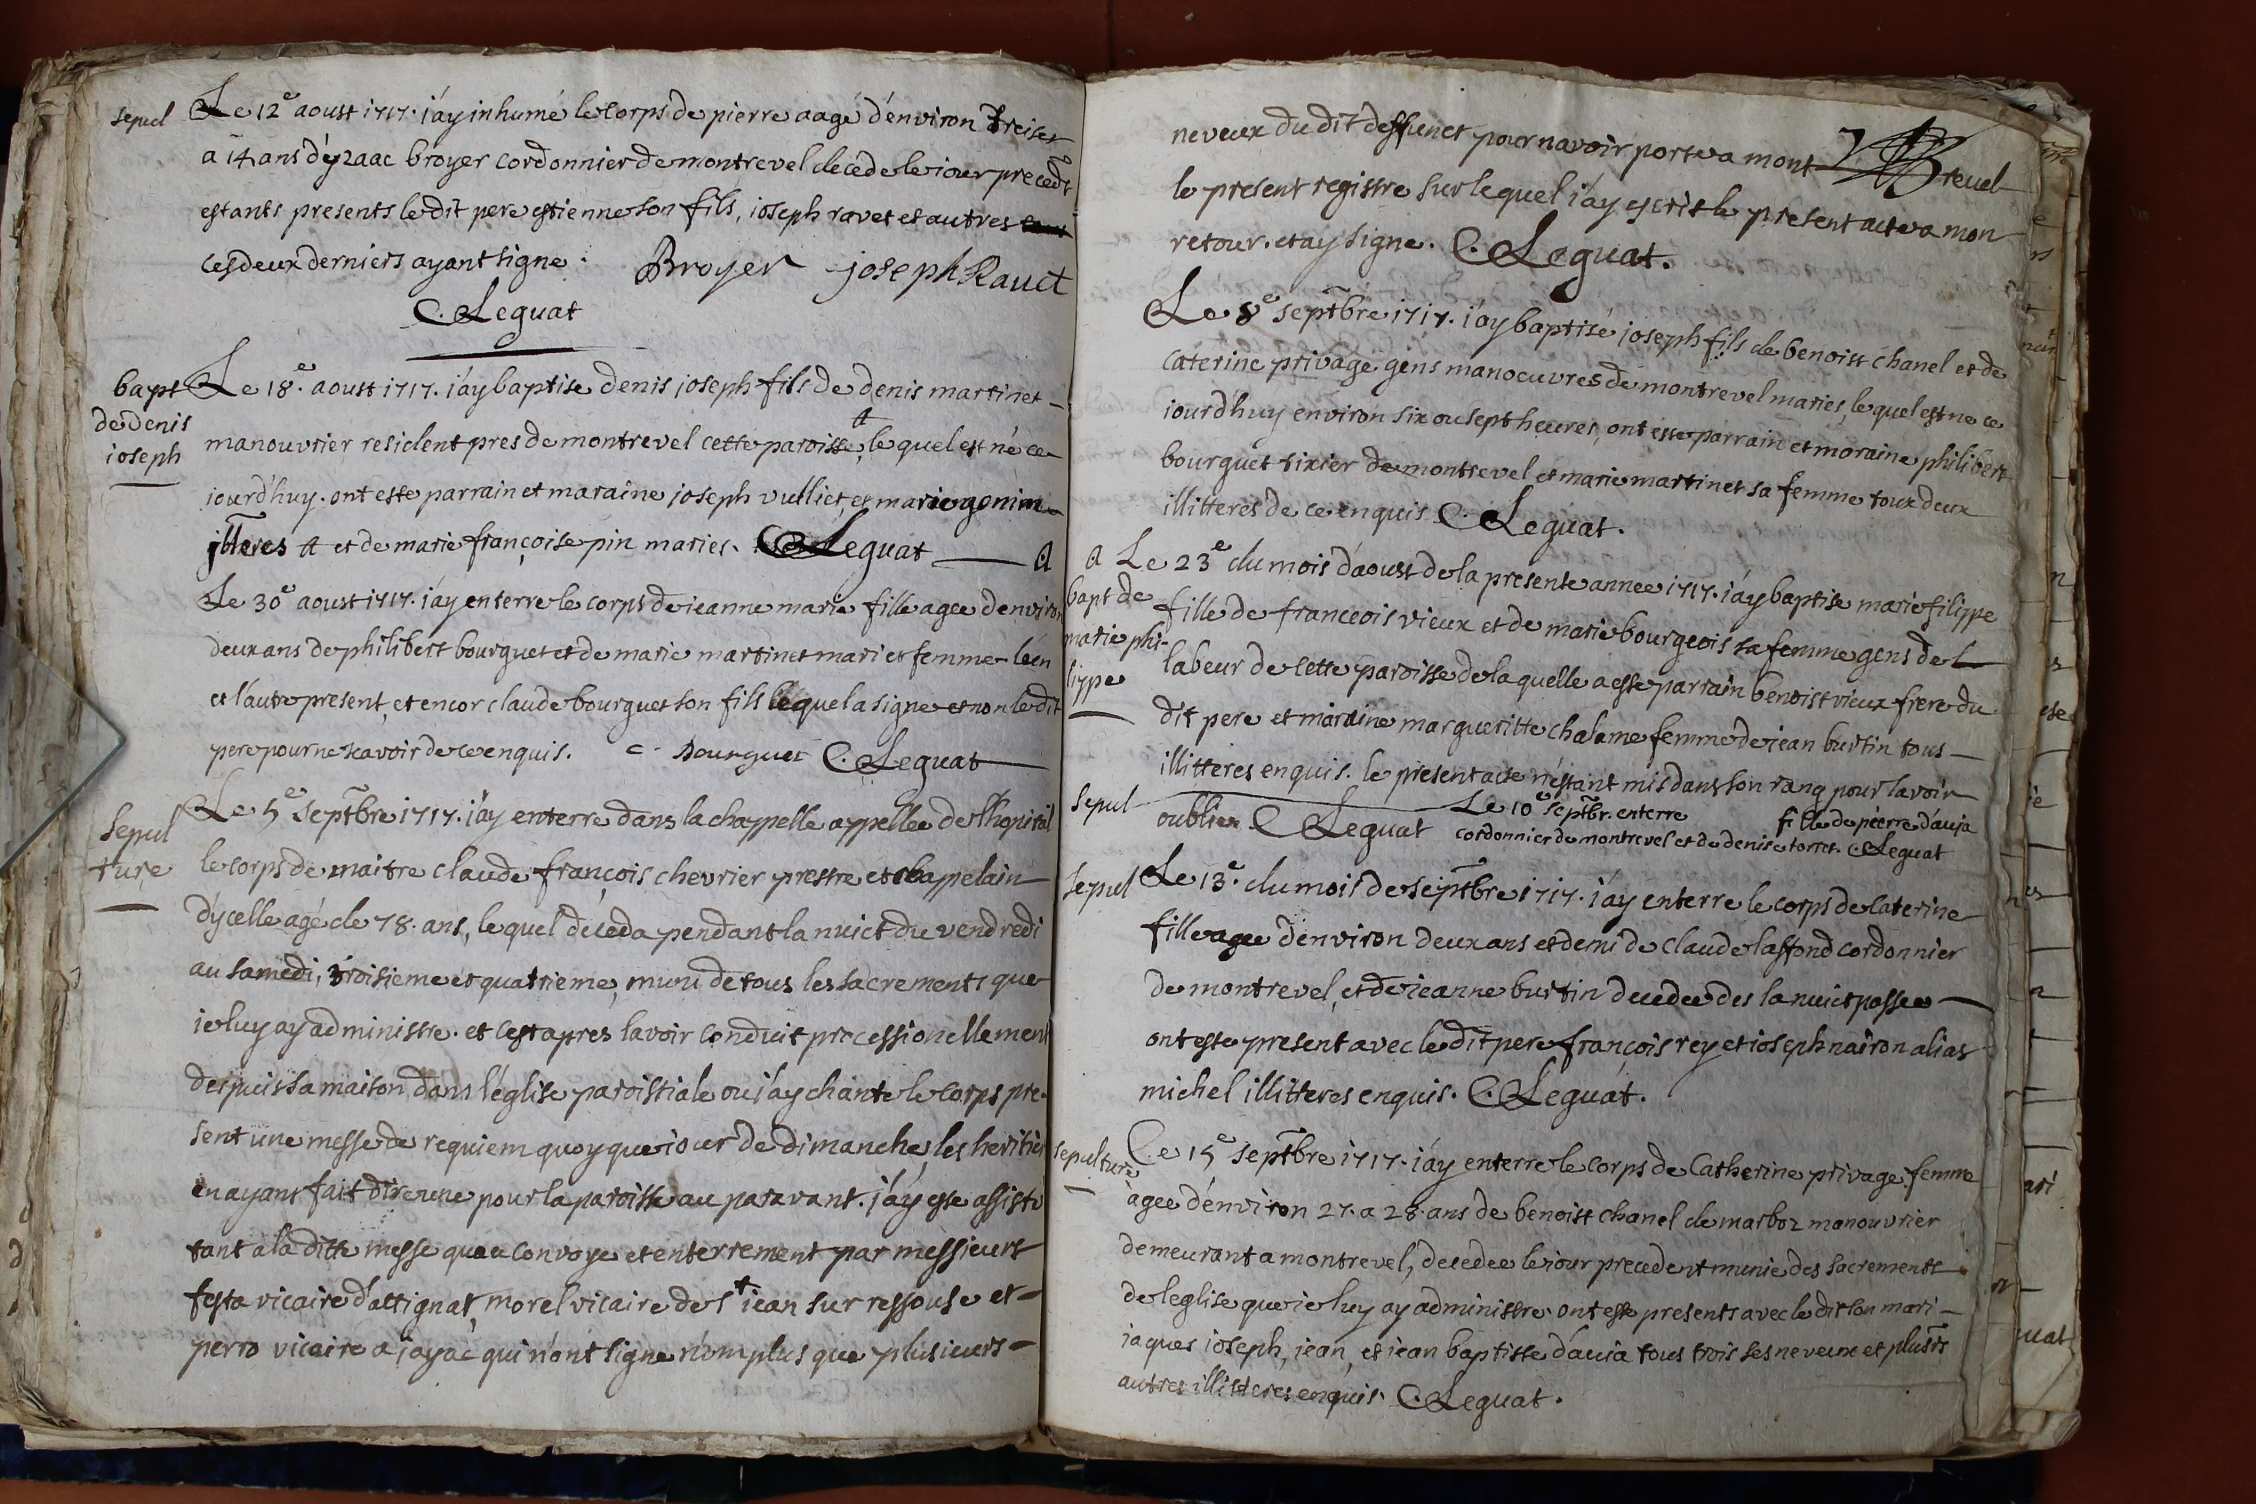 sepul
Le 12e aoust 1717. i'ay inhumé le corps de pierre aagé d'environ treise
a 14 ans d'yzaac broyer cordonnier de montrevel decede le iour precedt
estants presents le dit pere estienne son fils, ioseph ravet et autres
ces deux derniers ayant signe. Broyer joseph Rauet
C. Leguat
bapt
de denis
ioseph
Le 18e. aoust 1717. i'ay baptise denis ioseph fils de denis martinet
manouvrier resident pres de montrevel cette paroisse, # le quel est né ce
iourd'huy. ont este parrain et maraine joseph vulliet, et marie gonin
illteres # et de marie françoise pin maries. C. Leguat A
Le 30e aoust 1717. i'ay enterre le corps de ieanne marie fille agee d'environ
deux ans de philibert bourguet et de marie martinet mari et femme l'en
et l'autre present, et encor claude bourguet son fils lequel a signe et non le dit
pere pour ne scavoir de ce enquis. C. Bourguet C. Leguat
sepul
ture
Le 5e septbre 1717. i'ay enterre dans la chappelle appellee de l'hopital
le corps de maitre claude françois chevrier prestre et chappelain
d'ycelle agé de 78. ans, le quel deceda pendant la nuict du vendredi
au samedi, troisieme et quatrieme, muni de tous les sacrements que
ie luy ay administre. et c'est apres l'avoir conduit processionellement
despuis sa maison dans l'eglise paroissiale ou i'ay chante le corps pre-
sent une messe de requiem quoy que iour de dimanche, les heritiers
en ayant fait dire une pour la paroisse au paravant. j'ay este assisté
tant a la ditte messe qu'au convoye et enterrement par messieurs
festa vicaire d'attignat, morel vicaire de st iean sur ressouse et
perro vicaire a jayac qui n'ont signe n'om plus que plusieurs
neveux du dit deffunct pour n'avoir porte a mont revel
le present registre sur lequel i'ay escrit le present acte a mon
retour. et ay signe. C. Leguat.
Le 8e septbre 1717. i'ay baptisé joseph fils de benoist chanel et de
caterine privage gens manoeuvres de montrevel maries, le quel est ne ce
iourd'huy environ six ou sept heures, ont este parrain et maraine philibert
bourguet tixier de montrevel et marie martinet sa femme toux deux
illitteres de ce enquis C. Leguat.
A Le 23e du mois d'aoust de la presente annee 1717. i'ay baptise marie filippe
bapt de
marie phi-
lippe
fille de franceois vieux et de marie bourgeois sa femme gens de l
labeur de cette paroisse de la quelle a este parrain benoist vieux frere du
dit pere et maraine margueritte chalame femme de jean burtin tous
illitteres enquis. le present acte n'estant mis dans son rang pour l'avoir
oublier C. Leguat
sepul
Le 10e septbr. enterre fille de pierre d'auja
cordonnier de montrevel et de denise torret. C. Leguat
sepul
Le 13e. du mois de septbre 1717. i'ay enterre le corps de caterine
fille agee d'environ deux ans et demi de claude laffond cordonnier
de montrevel, et de ieanne burtin decedee des la nuict passee
ont este present avec le dit pere françois rey et ioseph nairon alias
michel illitteres enquis. C. Leguat.
sepulture
Ce 15e septbre 1717. i'ay enterre le corps de Catherine privage femme
agee d'environ 27. a 28. ans de benoist chanel de marboz manouvrier
demeurant a montrevel, decedee le iour precedent munie des sacrements
de l'eglise que ie luy ay administre. ont este presents avec le dit son mari
jaques ioseph, iean, et iean baptiste d'auja tous trois ses neveux et plusrs
autres illitteres enquis. C. Leguat.